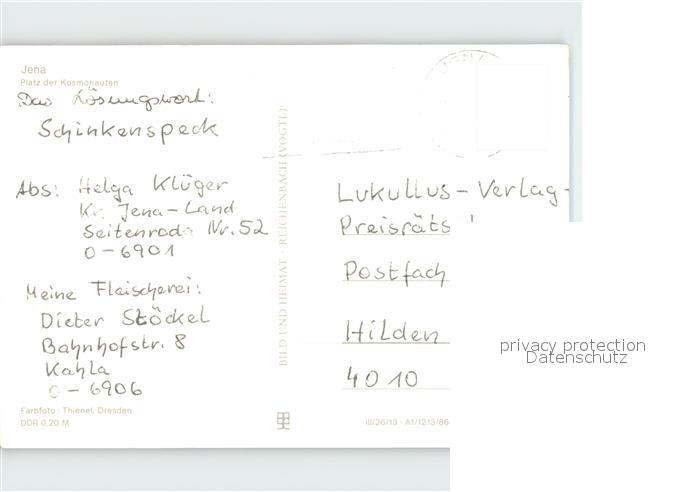 Jena
Platz der Kosmonauten
Das Lösungswort:
Schinkenspeck
Abs: Helga Klüger
Kr. Jena-Land
Seitenroda Nr. 52
O-6901
Meine Fleischerei:
Dieter Stöckel
Bahnhofstr. 8
Kahla
O-6906
Farbfoto: Thienel, Dresden
DDR 0,20 M
BILD UND HEIMAT · REICHENBACH (VOGTL)
JENA
Lukullus-Verlag-
Preisräts
Postfach
Hilden
4010
III/26/13 · A1/1213/86
privacy protection
Datenschutz